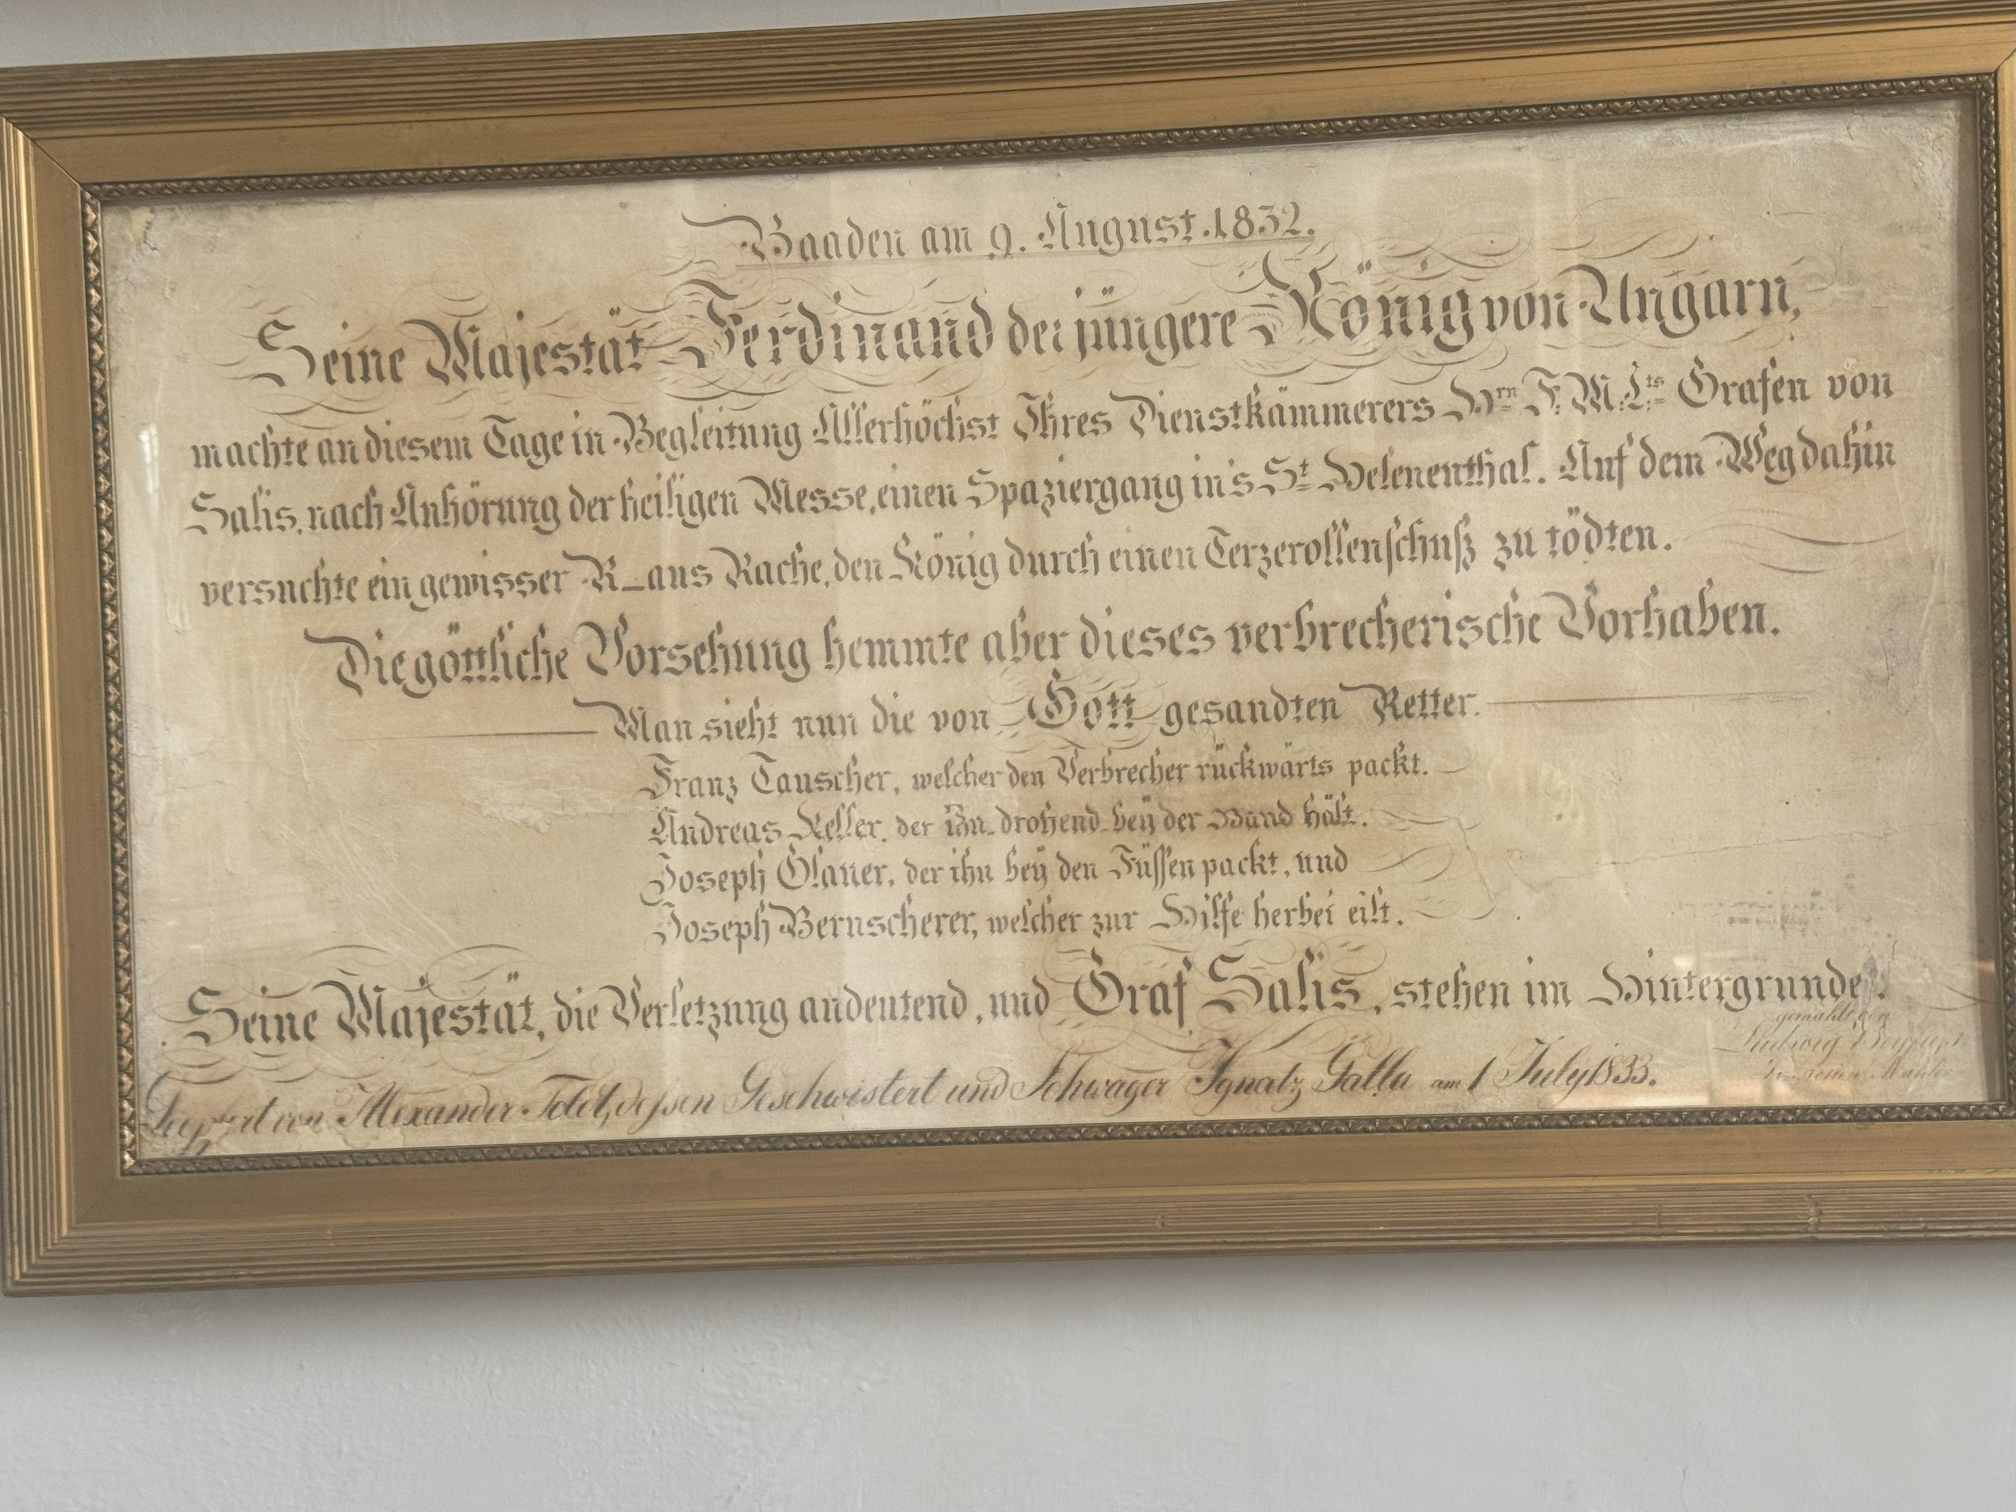 Baaden am 9. August 1832.
Seine Majestät Ferdinand der jüngere König von Ungarn,
machte an diesem Tage in Begleitung Allerhöchst Ihres Dienstkämmerers Hrn F. M. Lts Grafen von
Salis, nach Anhörung der heiligen Messe, einen Spaziergang in's St Helenenthal. Auf dem Weg dahin
versuchte ein gewisser R_ aus Rache, den König durch einen Terzerollenschuß zu tödten.
Die göttliche Vorsehung hemmte aber dieses verbrecherische Vorhaben.
Man sieht nun die von Gott gesandten Retter.
Franz Tauscher, welcher den Verbrecher rückwärts packt.
Andreas Keller, der ihn drohend bey der Hand hält.
Joseph Glaner, der ihn bey den Füssen packt, und
Joseph Bernscherer, welcher zur Hilfe herbei eilt.
Seine Majestät, die Verletzung andeutend, und Graf Salis, stehen im Hintergrunde.
gemahlt von
Ludwig
von Alexander dessen Geschwistert und Schwager Ignatz Galla am 1 July 1833.